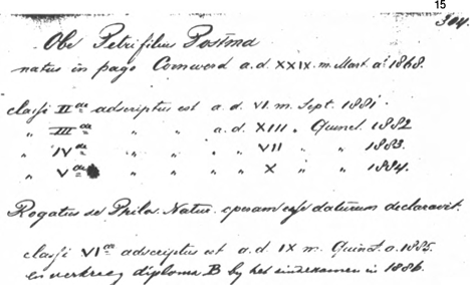 15
304.
Obe Petri filius Postma
natus in pago Cornwerd a. d. XXIX. m. Mart. aº 1868.
classi IIae adscriptus est a. d. VI. m. Sept. 1881.
" IIIae " " a. d. XIII " Quinct. 1882
" IVae " " " " VII " " 1883.
" Vae " " " " X " " 1884.
Rogatus se Philos. Natur. operam esse daturum declaravit.
classi VIae adscriptus est a. d. IX m. Quinct. a. 1885.
en verkreeg diploma B by het eindexamen in 1886.